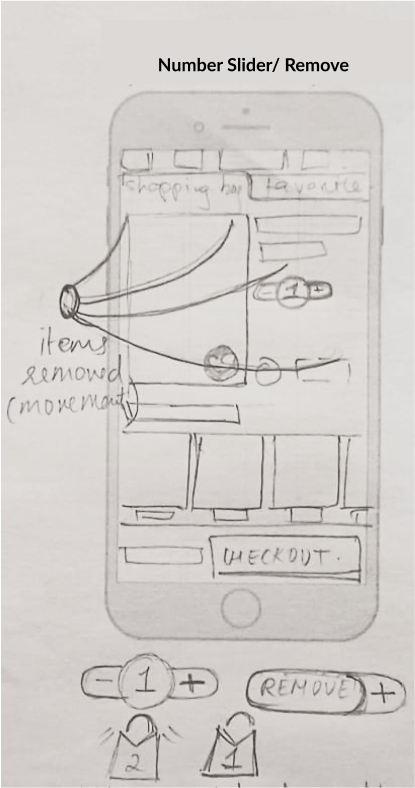 Number Slider/ Remove
shopping bag favorite
- 1 +
items
removed
(movement)
CHECKOUT.
- 1 +
REMOVE +
2
1